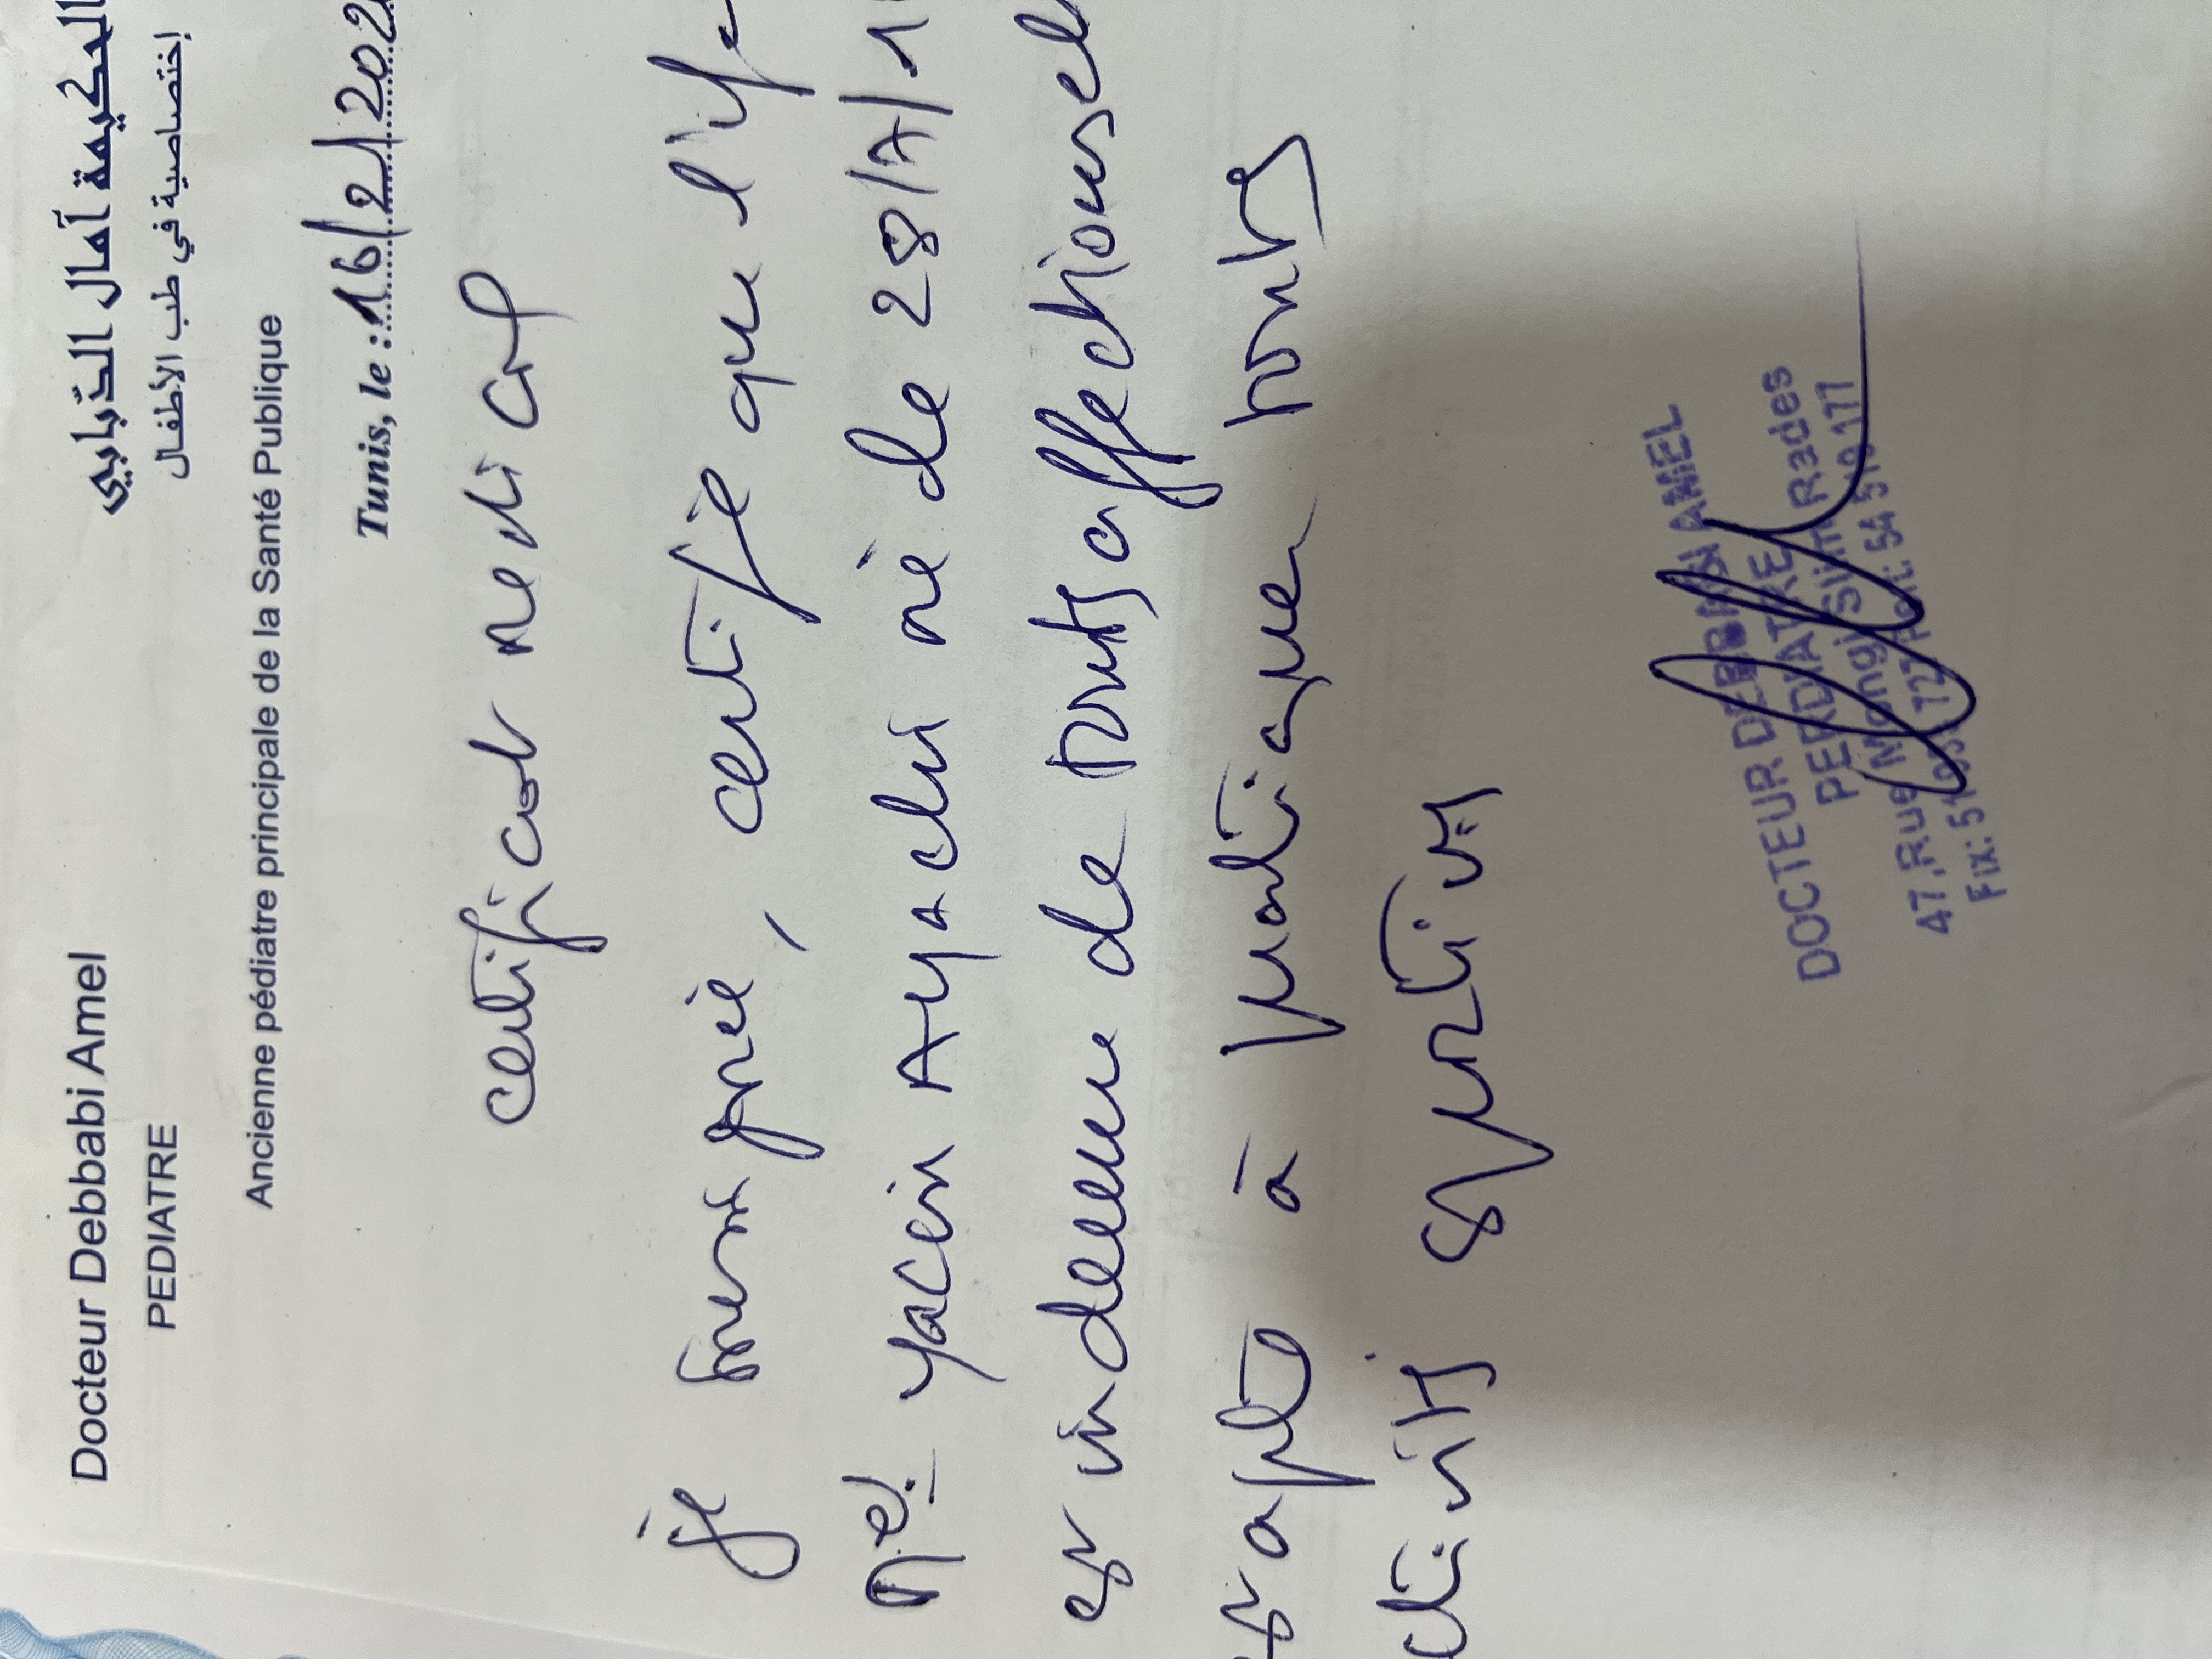 Docteur Debbabi Amel
PEDIATRE
الحكيمة آمال الدّبابي
إختصاصية في طب الأطفال
Ancienne pédiatre principale de la Santé Publique
Tunis, le : 16/2/202
certificat medical
je soussignée, certifie que l'
yacin Ayachi né le 28/
est indemne de affections
est apte à pratiquer toutes
sportives
DOCTEUR DEBBABI AMEL
PEDIATRE
47, Rue Mongi Slim Rades